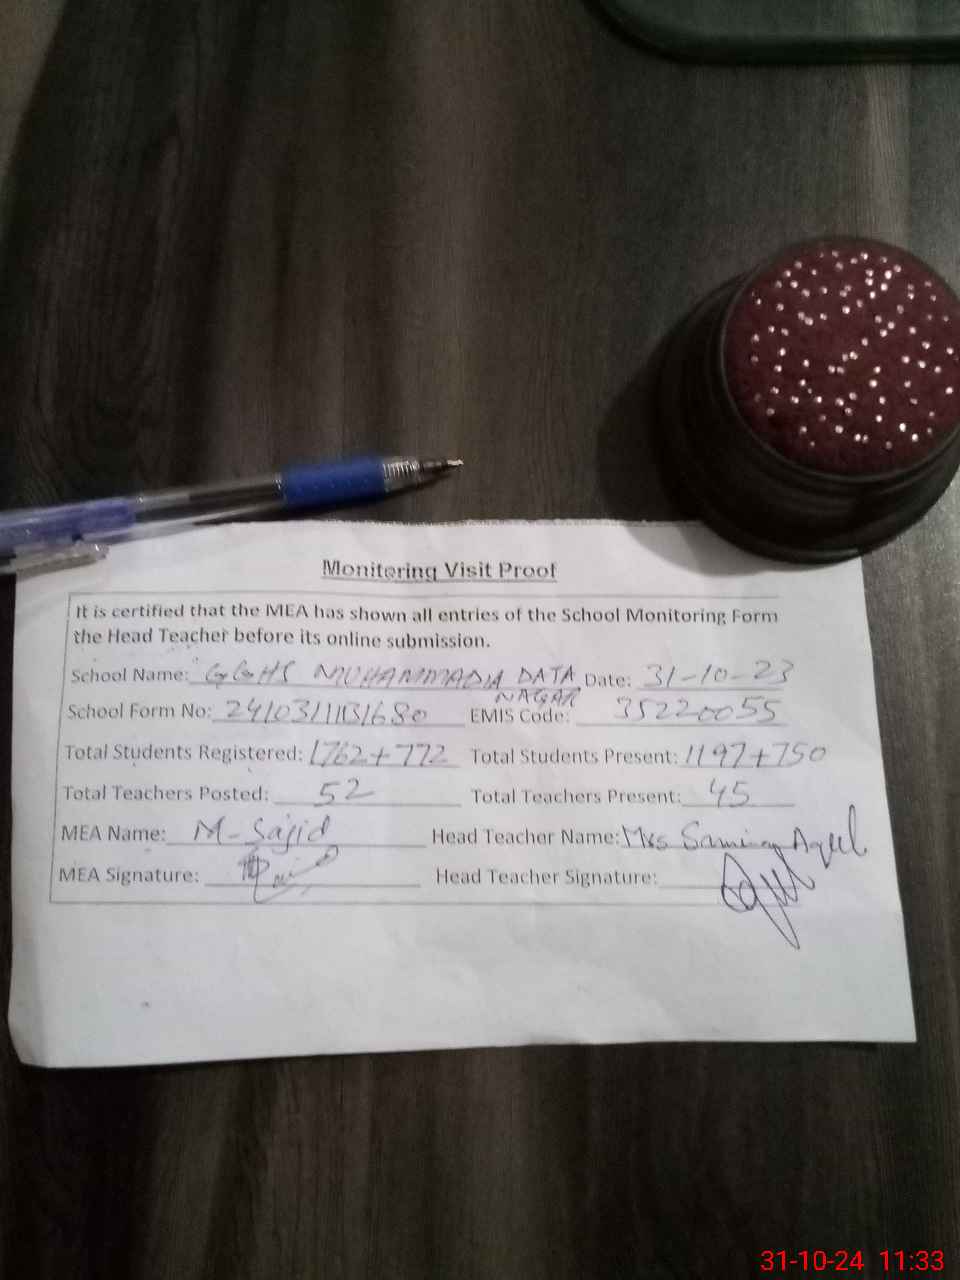 Monitoring Visit Proof
It is certified that the MEA has shown all entries of the School Monitoring Form
the Head Teacher before its online submission.
School Name: GGHS MUHAMMADIA DATA NAGAR Date: 31-10-23
School Form No: EMIS Code: 35220055
Total Students Registered: 1762+772 Total Students Present: 1197+750
Total Teachers Posted: 52 Total Teachers Present: 45
MEA Name: M-Sajid Head Teacher Name: Mrs Aqeel
MEA Signature: Head Teacher Signature:
31-10-24 11:33